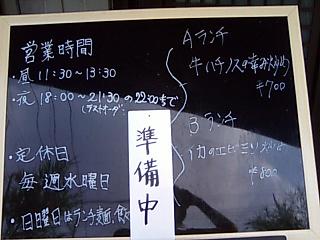 営業時間
・昼 11:30~13:30
・夜 18:00~21:30 の22:00まで
(ラストオーダー)
・定休日
毎週水曜日
・日曜日はランチ麺、飯
準備中
Aランチ
牛ハチノス
¥700
Bランチ
イカのエビ
¥800